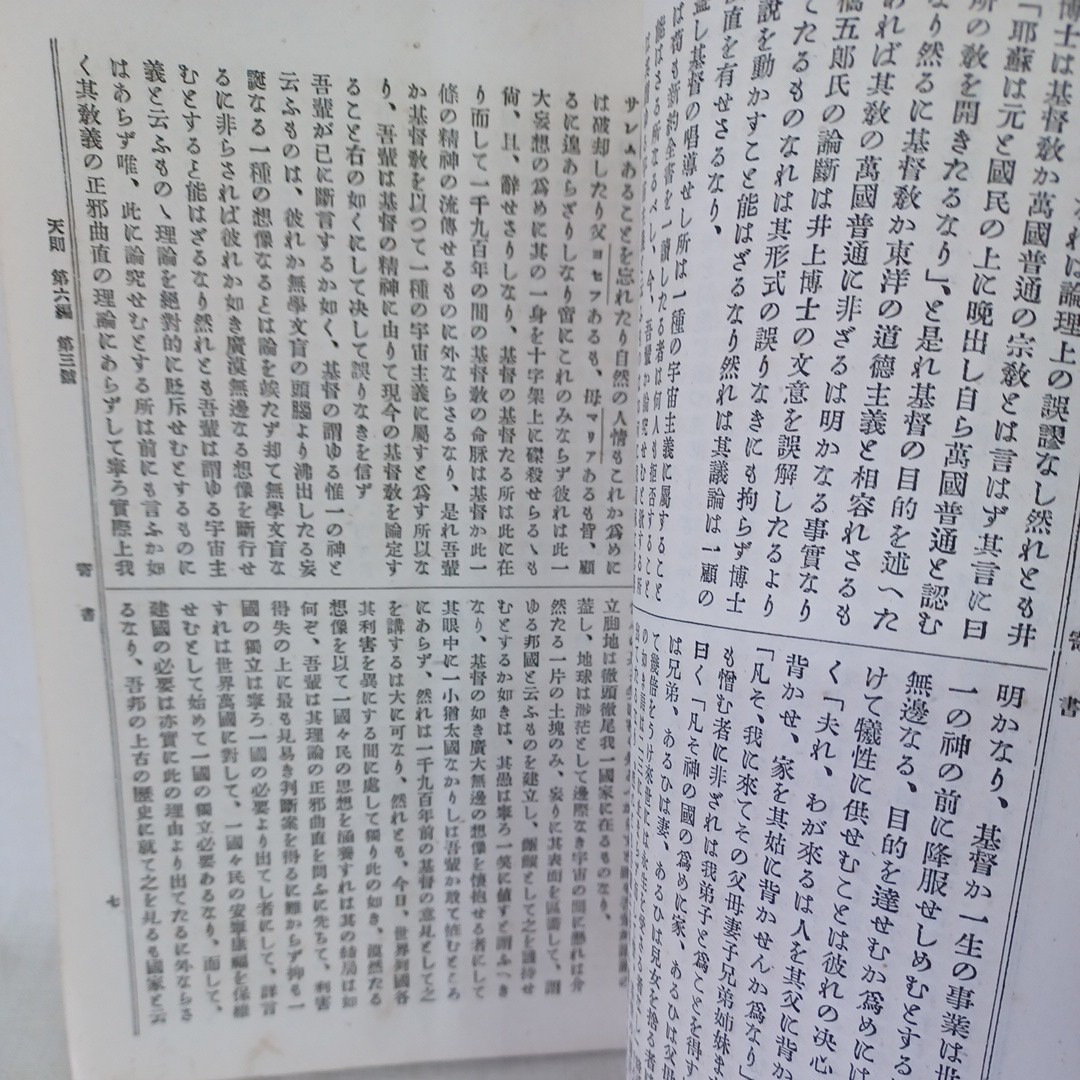 博士は基督敎か萬國普通の宗敎とは言はず其言に曰
「耶蘇は元と國民の上に晩出し自ら萬國普通と認む
所の敎を開きたるなり」、と是れ基督の目的を述へた
なり然るに基督敎か東洋の道德主義と相容れさるも
あれば其敎の萬國普通に非ざるは明かなる事實なり
橋五郎氏の論斷は井上博士の文意を誤解したるより
てたるものなれは其形式の誤りなきにも拘らず博士
說を動かすこと能はざるなり然れは其議論は一顧の
直を有せさるなり、
蓋し基督の唱導せし所は一種の宇宙主義に屬すること
は苟も新約全書を一讀したる者は何人も拒否すること
能はさる所なるべし、今、吾輩か論究せむと欲する所
明かなり、基督か一生の事業は
一の神の前に降服せしめむとする
無邊なる、目的を達せむか爲めには
けて犧牲に供せむことは彼れの決心
く「夫れ、わが來るは人を其父に背か
背かせ、家を其姑に背かせんか爲なり」
「凡そ、我に來てその父母妻子兄弟姉妹ま
も憎む者に非ざれは我弟子と爲ことを得す
曰く「凡そ神の國の爲めに家、あるひは父母
は兄弟、あるひは妻、あるひは兒女を捨る者は
サレムあることを忘れたり自然の人情もこれか爲めに
は破却したり父ヨセフあるも、母マリアあるも皆、顧
るに遑あらざりしなり啻にこれのみならず彼れは此一
大妄想の爲めに其の一身を十字架上に磔殺せらるゝも
尙、且、辭せさりしなり、基督の基督たる所は此に在
り而して一千九百年の間の基督敎の命脉は基督か此一
條の精神の流傳せるものに外ならさるなり、是れ吾輩
か基督敎を以つて一種の宇宙主義に屬すと爲す所以な
り、吾輩は基督の精神に由りて現今の基督敎を論定す
ること右の如くにして决して誤りなきを信ず
吾輩が已に斷言するか如く、基督の謂ゆる惟一の神と
云ふものは、彼れか無學文盲の頭腦より沸出したる妄
誕なる一種の想像なるとは論を竢たず却て無學文盲な
るに非らされば彼れか如き廣漠無邊なる想像を斷行せ
むとすること能はざるなり然れとも吾輩は謂ゆる宇宙主
義と云ふものゝ理論を絕對的に貶斥せむとするものに
はあらず唯、此に論究せむとする所は前にも言ふか如
く其敎義の正邪曲直の理論にあらずして寧ろ實際上我
立脚地は徹頭徹尾我一國家に在るものなり、
蓋し、地球は渺茫として邊際なき宇宙の間に懸れは介
然たる一片の土塊のみ、妄りに其表面を區畵して、謂
ゆる邦國と云ふものを建立し、齷齪として之を維持せ
むとするか如きは、其愚は寧ろ一笑に値すと謂ふへき
なり、基督の如き廣大無邊の想像を懷抱せる者にして
其眼中に一小猶太國なかりしは吾輩か敢て怪むところ
にあらず、然れは一千九百年前の基督の意見として之
を講するは大に可なり、然れとも、今日、世界列國各
其利害を異にする間に處して獨り此の如き、漠然たる
想像を以て一國々民の思想を涵養すれは其の結局は如
何ぞ、吾輩は其理論の正邪曲直を問ふに先ちて、利害
得失の上に最も見易き判斷案を得るに難からず抑も一
國の獨立は寧ろ一國の必要より出てし者にして、詳言
すれは世界萬國に對して、一國々民の安寧康福を保維
せむとして始めて一國の獨立必要あるなり、而して、
建國の必要は亦實に此の理由より出てたるに外ならさ
るなり、吾邦の上古の歷史に就て之を見るも國家と云
寄書
天則 第六編 第三號
寄書
七